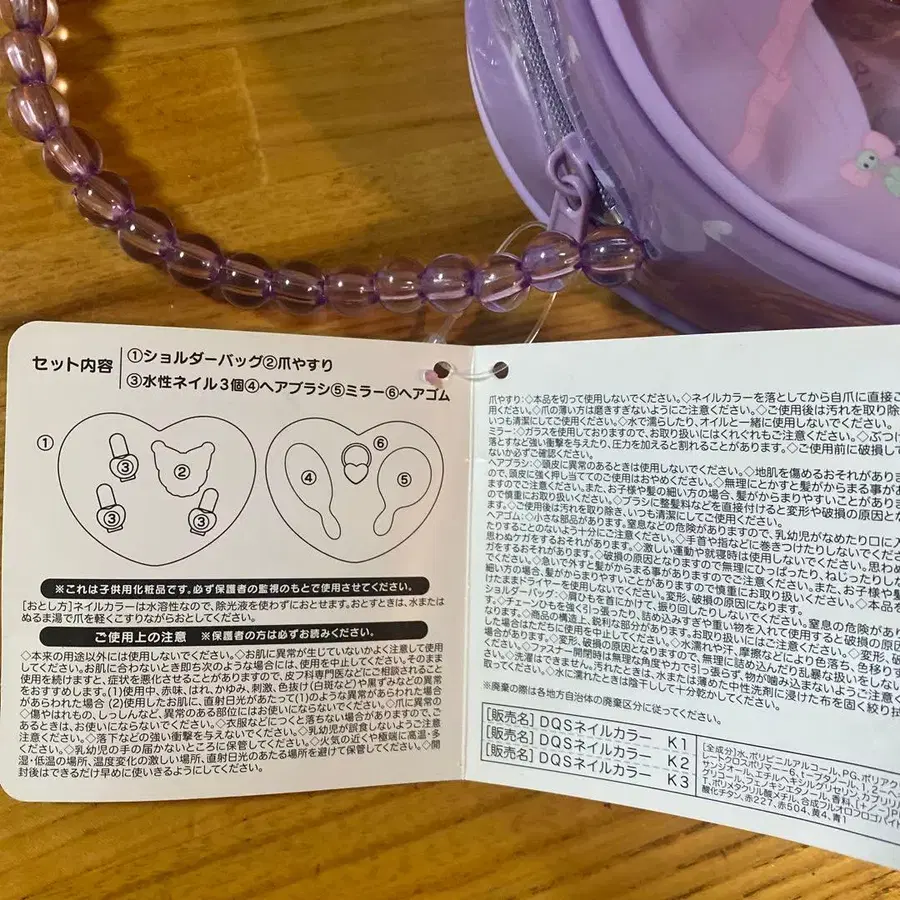 セット内容
①ショルダーバッグ②爪やすり
③水性ネイル3個④ヘアブラシ⑤ミラー⑥ヘアゴム
①
②
③
③
③
④
⑤
⑥
※これは子供用化粧品です。必ず保護者の監視のもとで使用させてください。
[おとし方]ネイルカラーは水溶性なので、除光液を使わずにおとせます。おとすときは、水または
ぬるま湯で爪を軽くこすりながらおとしてください。
ご使用上の注意 ※保護者の方は必ずお読みください。
◇本来の用途以外には使用しないでください。◇お肌に異常が生じていないかよく注意して使用
してください。お肌に合わないとき即ち次のような場合には、使用を中止してください。そのまま
使用を続けますと、症状を悪化させることがありますので、皮フ科専門医などにご相談されること
をおすすめします。(1)使用中、赤味、はれ、かゆみ、刺激、色抜け(白斑など)や黒ずみなどの異常が
あらわれた場合 (2)使用したお肌に、直射日光があたって(1)のような異常があらわれた場合
◇傷やはれもの、しっしんなど、異常のある部位にはお使いにならないでください。◇爪に異常の
あるときは、お使いにならないでください。◇衣服などにつくと落ちない場合がありますので、ご
注意ください。◇落下などの強い衝撃を与えないでください。◇乳幼児が誤食しないようご注意
ください。◇乳幼児の手の届かないところに保管してください。◇火気の近くや極端に高温・多
湿・低温の場所、温度変化の激しい場所、直射日光のあたる場所を避けて保管してください。◇開
封後はできるだけ早めに使いきるようにしてください。
爪やすり:◇本品を切って使用しないでください。◇ネイルカラーを落としてから自爪に直接ご
用ください。◇爪の薄い方は磨きすぎないようにご注意ください。◇ご使用後は汚れを取り除
いつも清潔にしてください。◇水で濡らしたり、オイルと一緒に使用しないでください。
ミラー:◇ガラスを使用しておりますので、お取り扱いにはくれぐれもご注意ください。◇ぶつけ
落とすなど強い衝撃を与えたり、圧力を加えると割れることがあります。◇ご使用前に破損して
ないか必ずご確認ください。
ヘアブラシ:◇頭皮に異常のあるときは使用しないでください。◇地肌を傷めるおそれがありま
で、頭皮に強く押し当ててのご使用はおやめください。◇無理にとかすと髪がからまる事があ
ますのでご注意ください。また、お子様や髪の細い方の場合、髪がからまりやすいことがありま
ので慎重にお取り扱いください。◇ブラシに整髪料などを直接付けると変形や破損の原因とな
す。◇ご使用後は汚れを取り除き、いつも清潔にしてご使用ください。
ヘアゴム:◇小さな部品があります。窒息などの危険がありますので、乳幼児がなめたり口に入
たりすることのないよう十分にご注意ください。◇手首や指などに巻きつけたりしないでくださ
思わぬケガをするおそれがあります。◇激しい運動や就寝時は使用しないでください。思わぬ
ガをするおそれがあります。◇破損の原因となりますので無理にひっぱったり、ねじったりしな
ください。◇急いで外すと髪がからまる事がありますのでご注意ください。また、お子様や髪
細い方の場合、髪がからまりやすいことがありますので慎重にお取り扱いください。◇本品を
けたままドライヤーを使用しないでください。変形、破損の原因になります。
ショルダーバッグ:◇肩ひもを首にかけて、振り回したりしないでください。窒息の危険があり
す。◇チェーンひもを強く引っ張ったり、詰め込みすぎや重い物を入れて使用すると破損の原因
なります。◇商品の構造上、鋭利な部分があります。お取り扱いにはご注意ください。◇変形、破
した場合はただちに使用を中止してください。◇水濡れや汗、摩擦などにより色落ち、色移りす
場合があります。◇変形、破損の原因となりますので、無理に詰め込んだり乱暴な扱いをしない
ください。◇ファスナー開閉時は無理な角度や力で引っ張らず、物が噛み込まないようご注意く
さい。◇洗濯はできません。汚れたときは、水または薄めた中性洗剤に浸けた布を固く絞り拭
取ってください。◇水に濡れたときは陰干しして十分乾かしてください。
※廃棄の際は各地方自治体の廃棄区分に従ってください。
[販売名] DQSネイルカラー K1
[販売名] DQSネイルカラー K2
[販売名] DQSネイルカラー K3
[全成分]水、ポリビニルアルコール、PG、ポリアク
レートクロスポリマー6、t-ブタノール、1,2-ヘ
サンジオール、エチルヘキシルグリセリン、カプリリル
グリコール、フェノキシエタノール、香料、[+/-]P
T、ポリメタクリル酸メチル、合成フルオロフロゴパイト
酸化チタン、赤227、赤504、黄4、青1